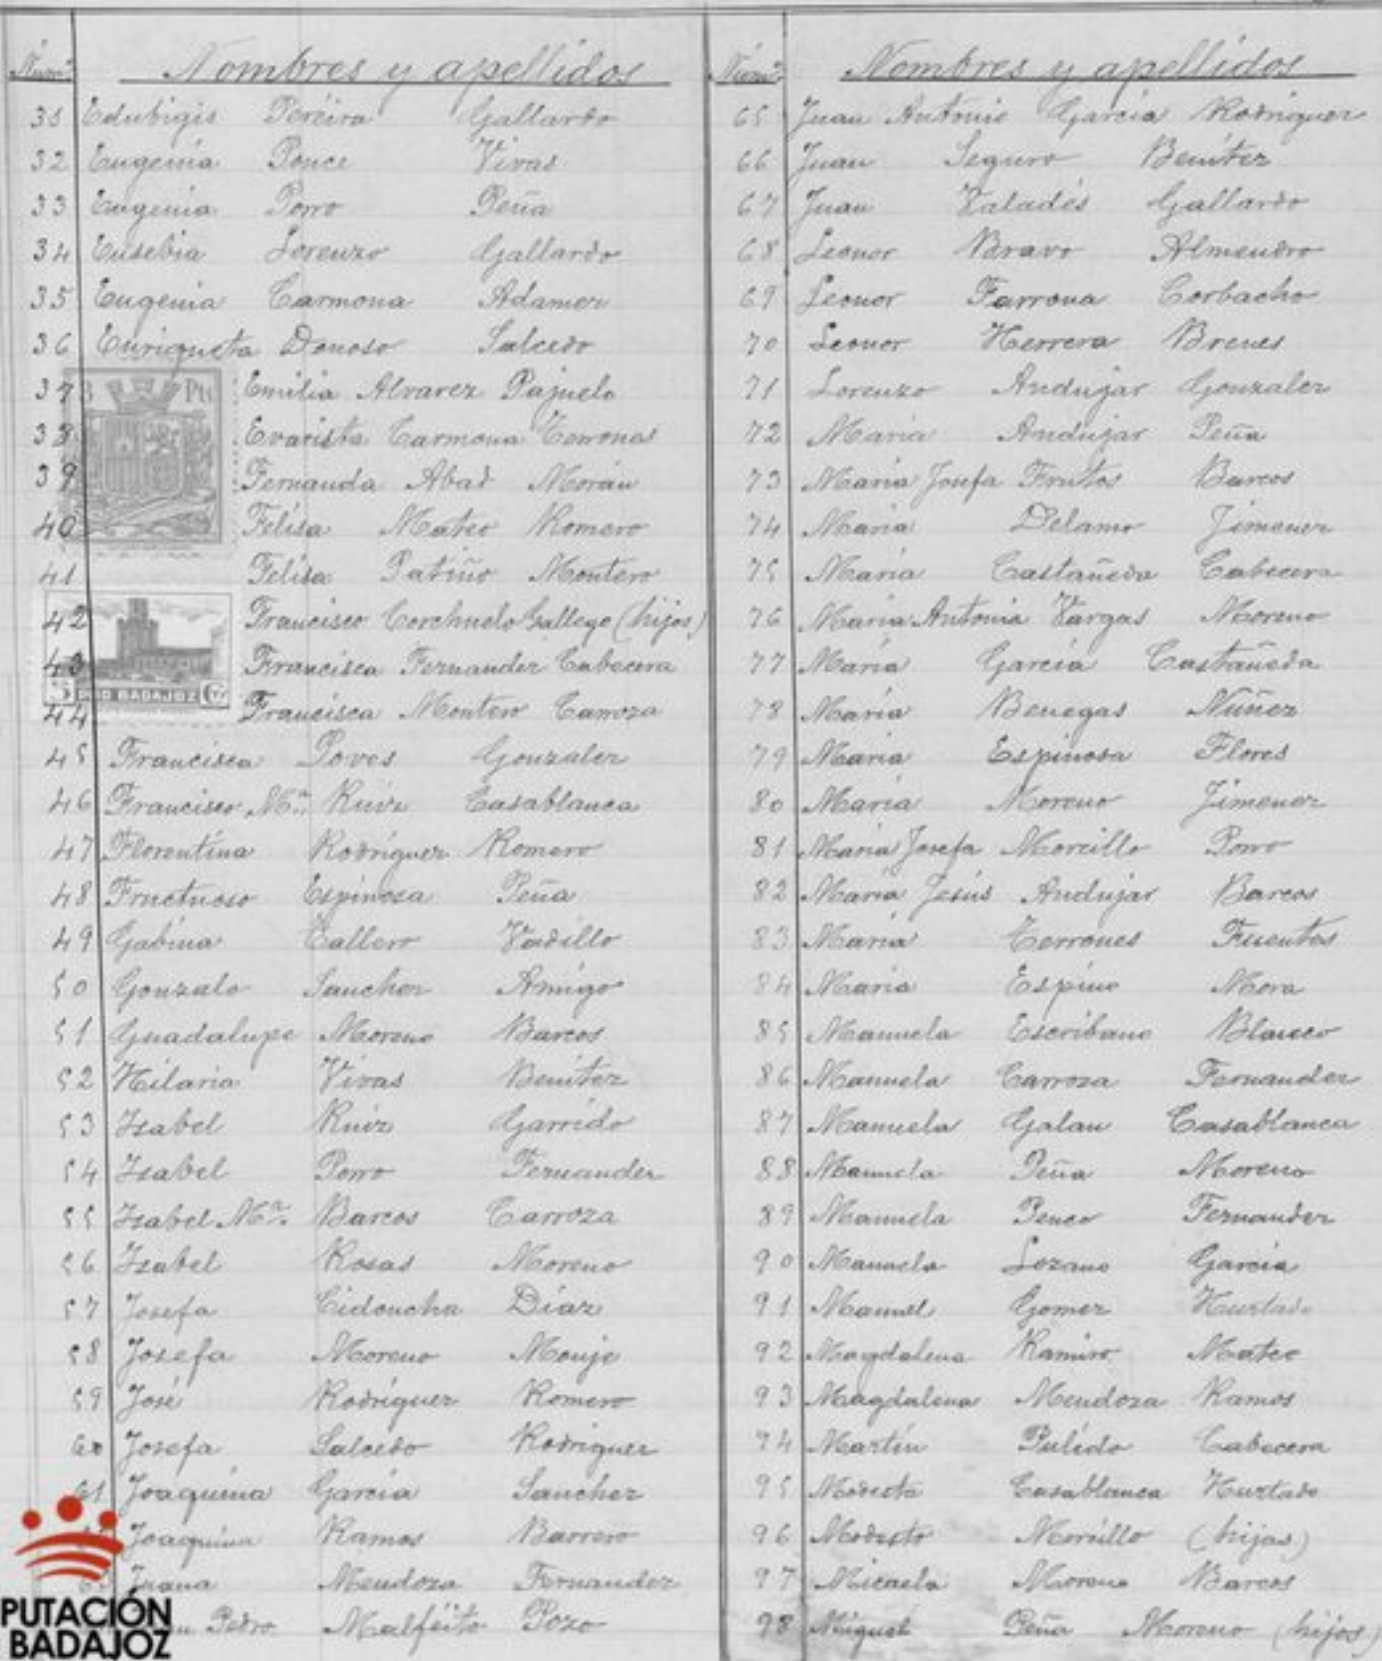 Núm.º Nombres y apellidos
31 Edubigis Pereira Gallardo
32 Eugenia Ponce Vivas
33 Eugenia Porro Peña
34 Eusebia Lorenzo Gallardo
35 Eugenia Carmona Adamez
36 Enriqueta Donoso Salcedo
37 Emilia Alvarez Pajuelo
38 Evarista Carmona Terronas
39 Fernanda Abad Morán
40 Felisa Mateo Romero
41 Felisa Patiño Montero
42 Francisco Corchuelo Gallego (hijos)
43 Francisca Fernandez Cabecera
44 Francisca Montero Carroza
45 Francisca Poves Gonzalez
46 Francisco M.ª Ruiz Casablanca
47 Florentina Rodríguez Romero
48 Fructuoso Espinosa Peña
49 Gabina Callero Vadillo
50 Gonzalo Sanchez Amigo
51 Guadalupe Moreno Barcos
52 Hilaria Vivas Benítez
53 Isabel Ruiz Garrido
54 Isabel Porro Fernandez
55 Isabel M.ª Barcos Carroza
56 Isabel Rosas Moreno
57 Josefa Cidoncha Díaz
58 Josefa Moreno Monje
59 José Rodríguez Romero
60 Josefa Salcedo Rodriguez
61 Joaquina García Sanchez
Joaquina Ramos Barrero
Juana Mendoza Fernandez
Pedro Malfeito Pozo
Pts
PRO BADAJOZ
PUTACIÓN
BADAJOZ
Núm.º Nombres y apellidos
65 Juan Antonio García Rodriguez
66 Juan Seguro Benítez
67 Juan Valadés Gallardo
68 Leonor Bravo Almendro
69 Leonor Farrona Corbacho
70 Leonor Herrera Brenes
71 Lorenzo Andujar Gonzalez
72 María Andujar Peña
73 María Josefa Frutos Barcos
74 María Delamo Jimenez
75 María Castañeda Cabecera
76 María Antonia Vargas Moreno
77 María García Castañeda
78 María Benegas Núñez
79 María Espinosa Flores
80 María Moreno Jimenez
81 María Josefa Morcillo Porro
82 María Jesús Andujar Barcos
83 María Terrones Fuentes
84 María Espino Mora
85 Manuela Escribano Blanco
86 Manuela Carroza Fernandez
87 Manuela Galan Casablanca
88 Manuela Peña Moreno
89 Manuela Penco Fernandez
90 Manuela Lozano García
91 Manuel Gomez Hurtado
92 Magdalena Ramiro Mateo
93 Magdalena Mendoza Ramos
94 Martín Pulido Cabecera
95 Modesta Casablanca Hurtado
96 Modesto Morcillo (hijas)
97 Micaela Moreno Barcos
98 Miguel Peña Moreno (hijos)